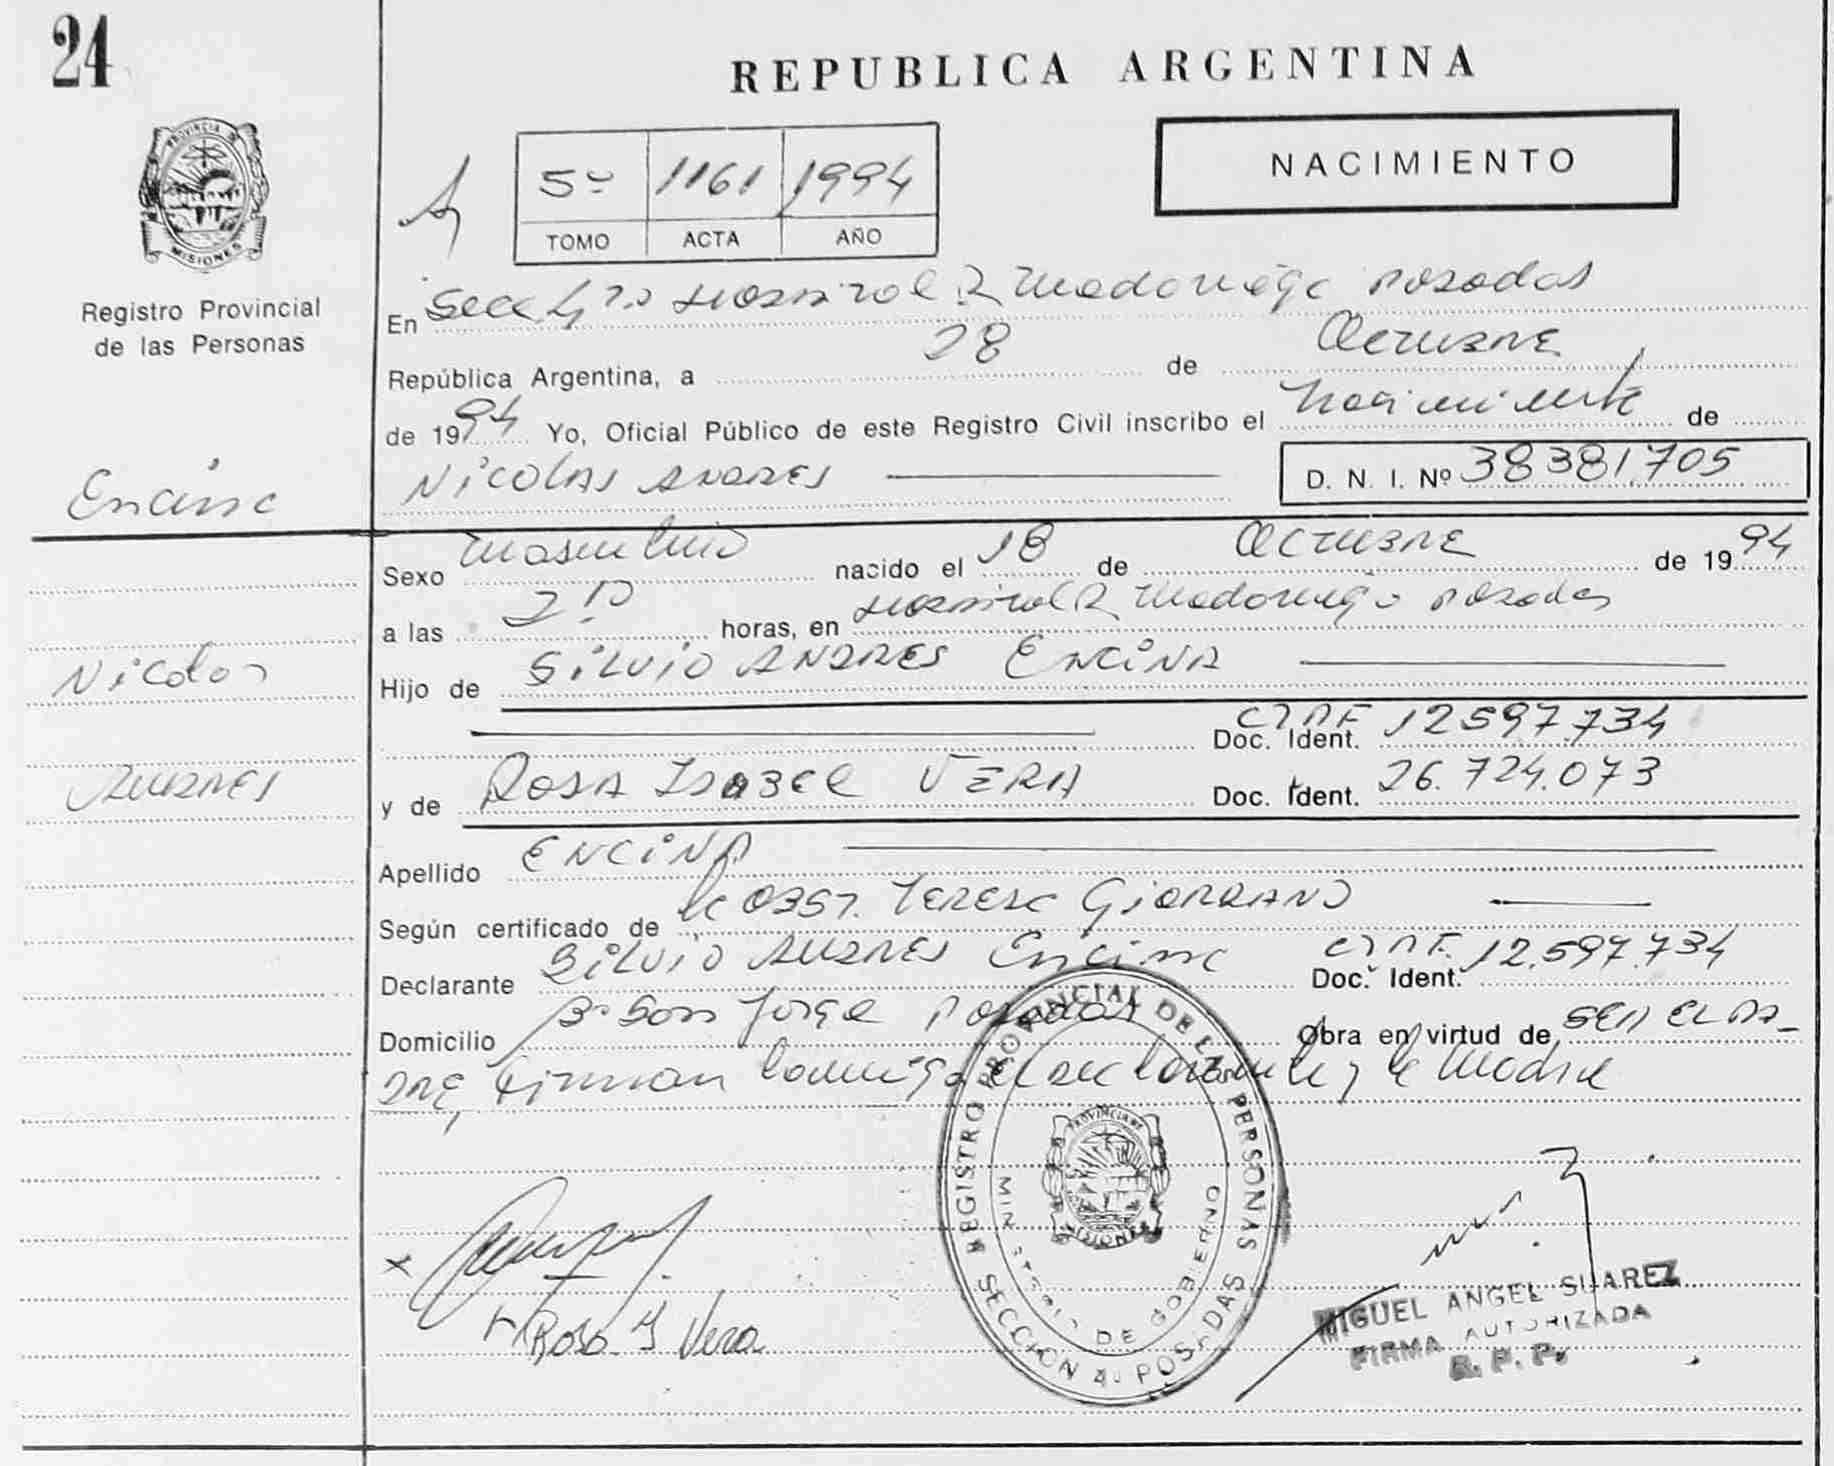 24
REPUBLICA ARGENTINA
NACIMIENTO
5º 1161 1994
TOMO ACTA AÑO
PROVINCIA DE MISIONES
Registro Provincial
de las Personas
En Secc. 4ta Hospital R Madariaga Posadas
República Argentina, a 28 de Octubre
de 1994 Yo, Oficial Público de este Registro Civil inscribo el nacimiento de
Nicolas Andres
D. N. I. Nº 38381.705
Encina
Sexo Masculino nacido el 18 de Octubre de 1994
a las horas, en Hospital R Madariaga Posadas
Nicolas
Hijo de Silvio Andres Encina
Doc. Ident. 12597.734
Andres
y de Rosa Isabel Vera Doc. Ident. 26.724.073
Apellido Encina
Según certificado de la Obst. Teresa Giordano
Declarante Silvio Andres Encina Doc. Ident. 12.597.734
Domicilio Bº San Jorge Posadas Obra en virtud de ser el pa-
dre, firman conmigo el declarante y la madre
REGISTRO PROVINCIAL DE LAS PERSONAS
MINISTERIO DE GOBIERNO
PROVINCIA DE MISIONES
SECCION 4ª POSADAS
Rosa I Vera
MIGUEL ANGEL SUAREZ
FIRMA AUTORIZADA
R. P. P.